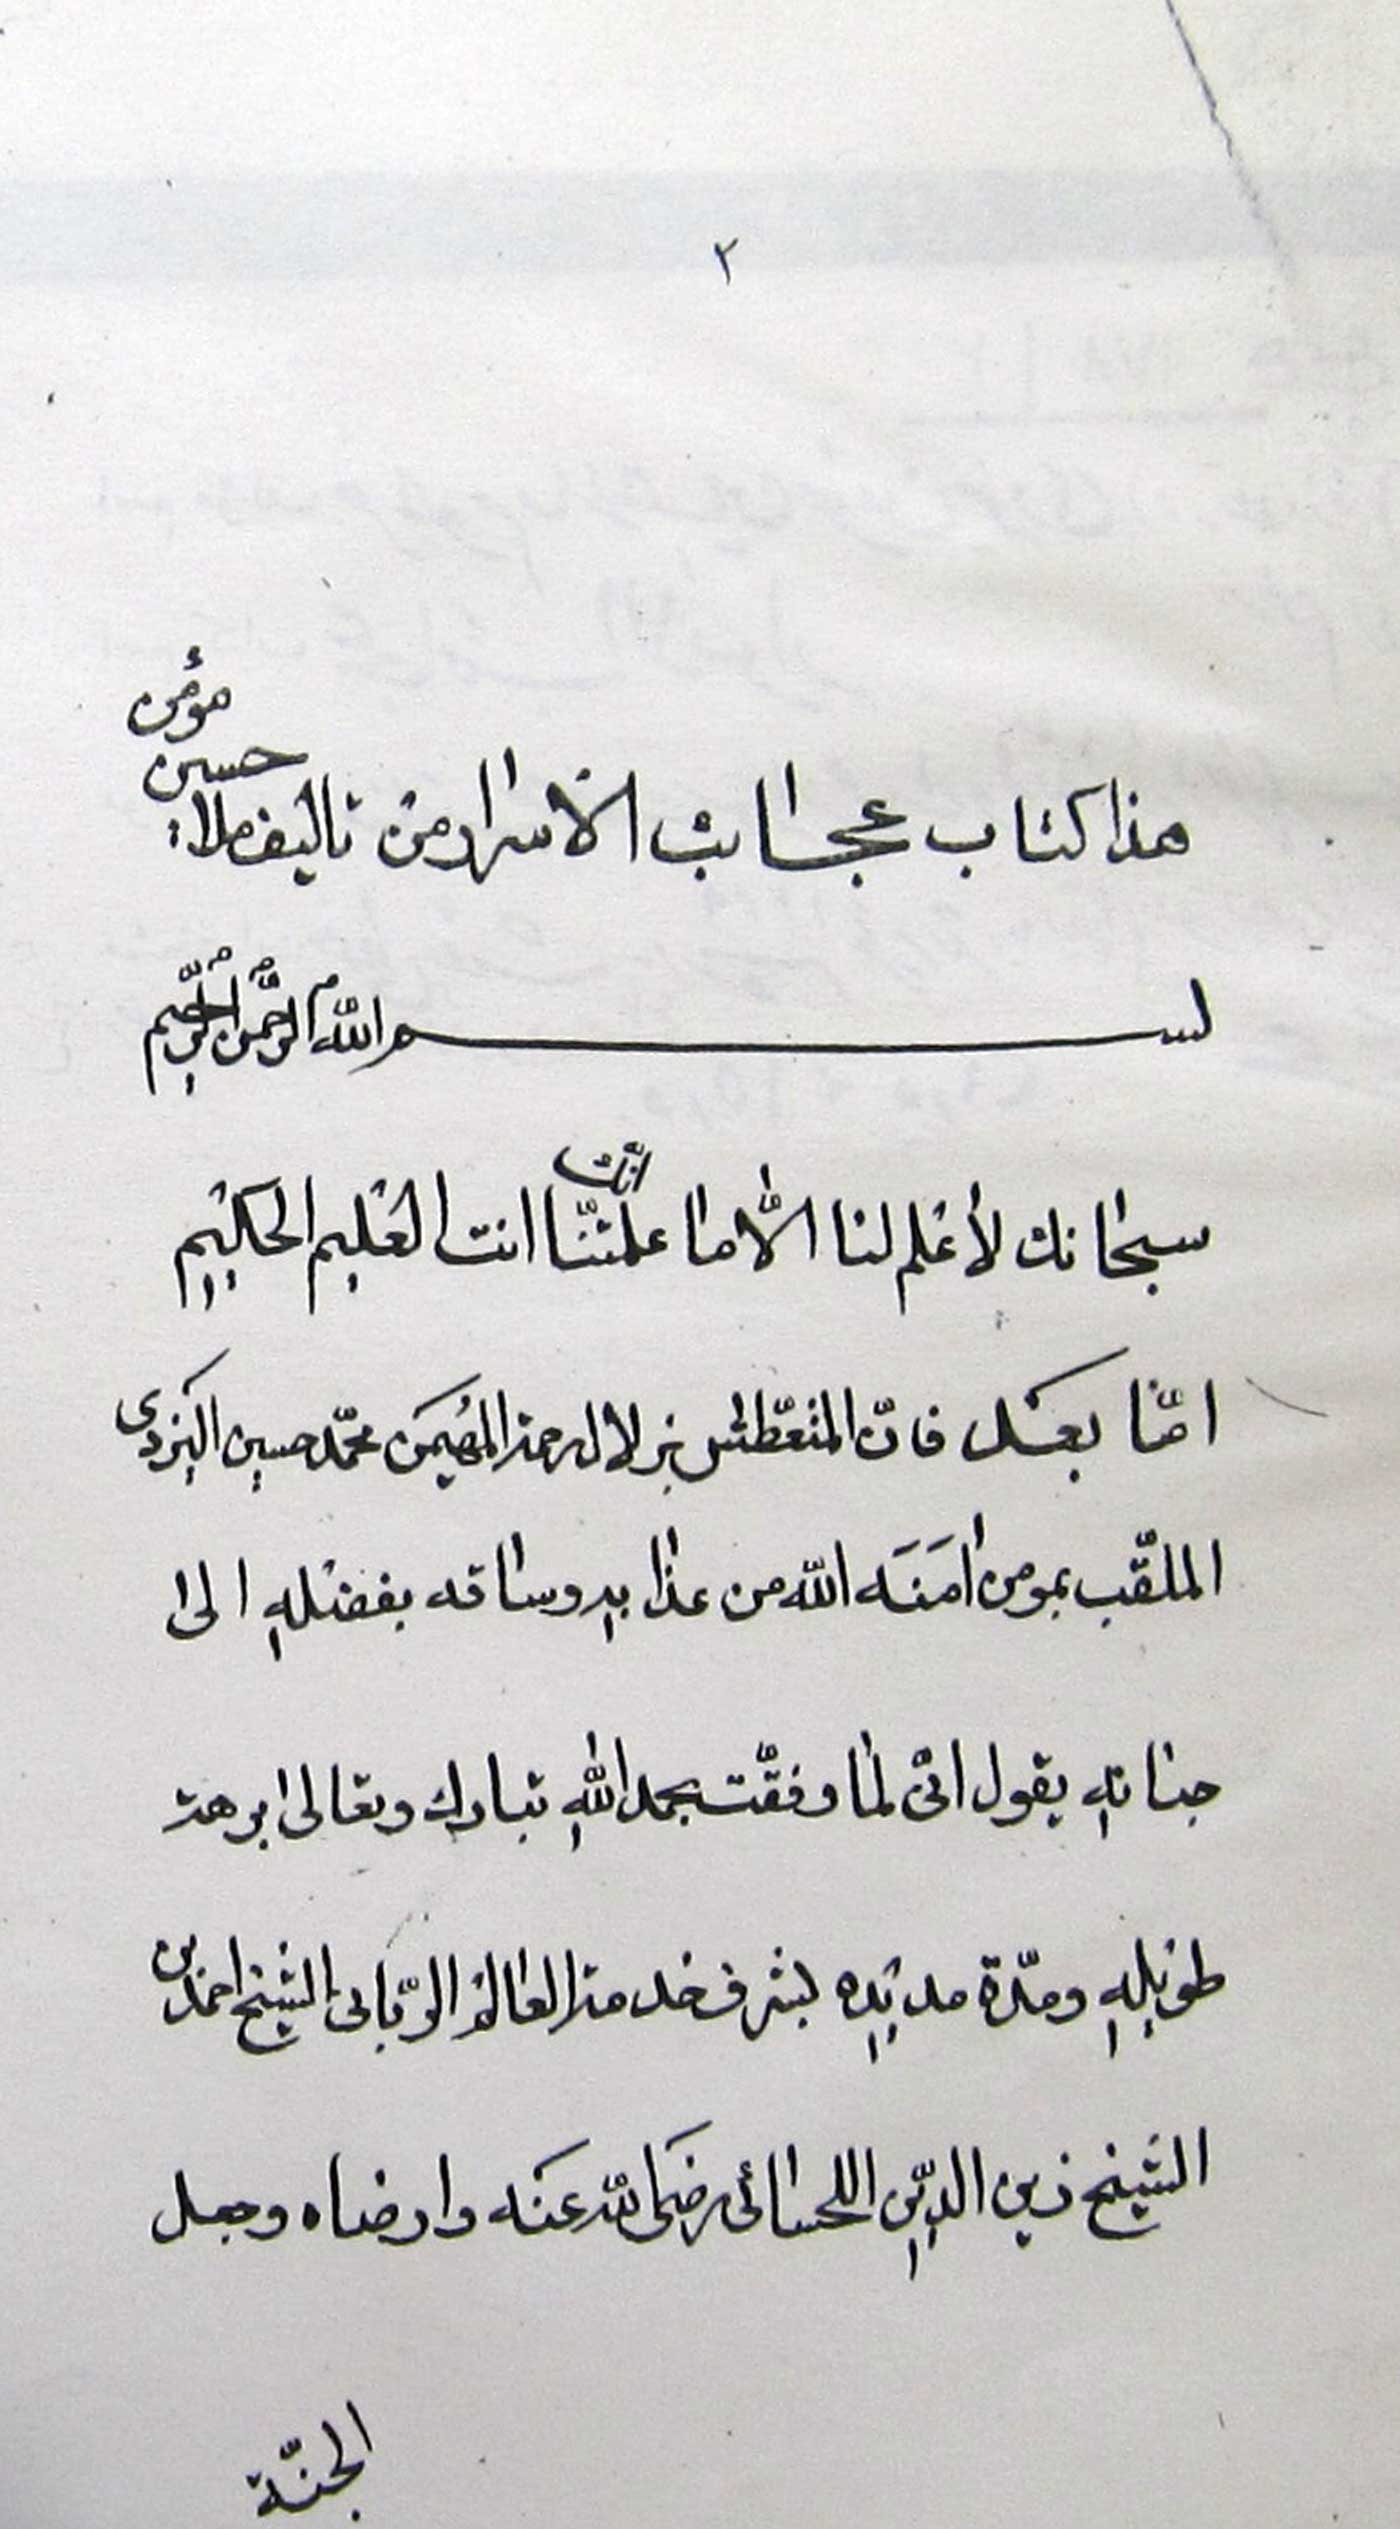 ٢
هذا كتاب عجائب الاسرار من تاليف ملا حسين مؤمن
بسم الله الرحمن الرحيم
سبحانك لا علم لنا الّا ما علمتنا انّك انت العليم الحكيم
امّا بعد فانّ المتعطّش بزلال رحمة المهيمن محمّد حسين اليزدى
الملقّب بمومن امَنَه الله من عذابهِ وساقه بفضلهِ الى
جنانهِ يقول انّى لما وفقّت بحمد اللهِ تبارك وتعالى برهة
طويلهِ ومدّة مديدِه بشرف خدمة العالم الربّانى الشيخ احمد بن
الشيخ زين الدّين اللحسائى رضى الله عنه وارضاه وجعل
الجنّة